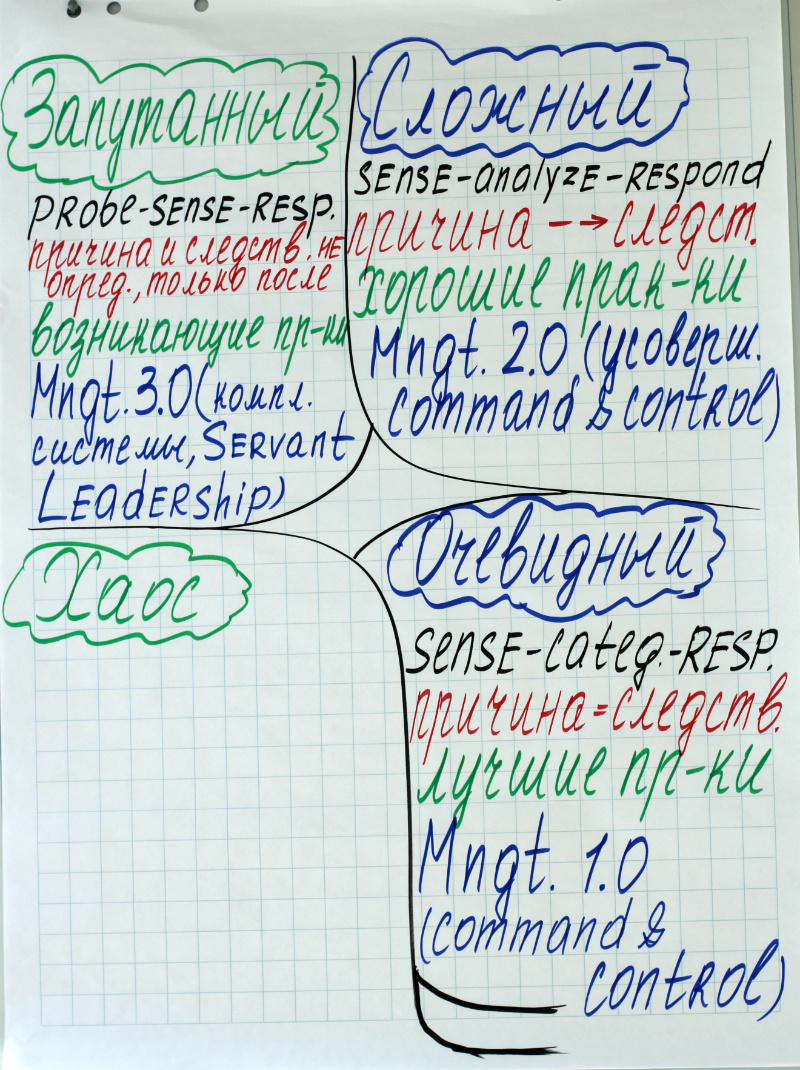 Запутанный
PRobe-SENSE-RESP.
причина и следств. не
опред., только после
возникающие пр-ки
Mngt. 3.0 (компл.
системы, SERvant
LEadERship)
Сложный
SENSE-analyzE-RESpond
причина --> следст.
хорошие прак-ки
Mngt. 2.0 (усоверш.
command & contROl)
Хаос
Очевидный
SENSE-categ.-RESP.
причина=следств.
лучшие пр-ки
Mngt. 1.0
(command &
contROl)